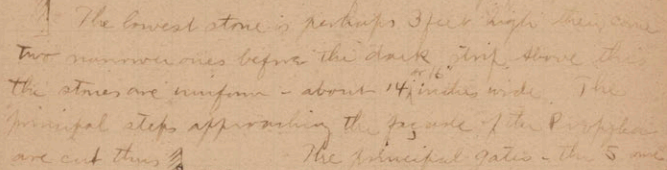 The lowest stone is perhaps 3 feet high then come
two narrower ones before the dark strip. Above this
the stones are uniform - about 14 or 16 inches wide. The
principal steps approaching the façade of the Propylaea
are cut thus The principal gates - the 5 are